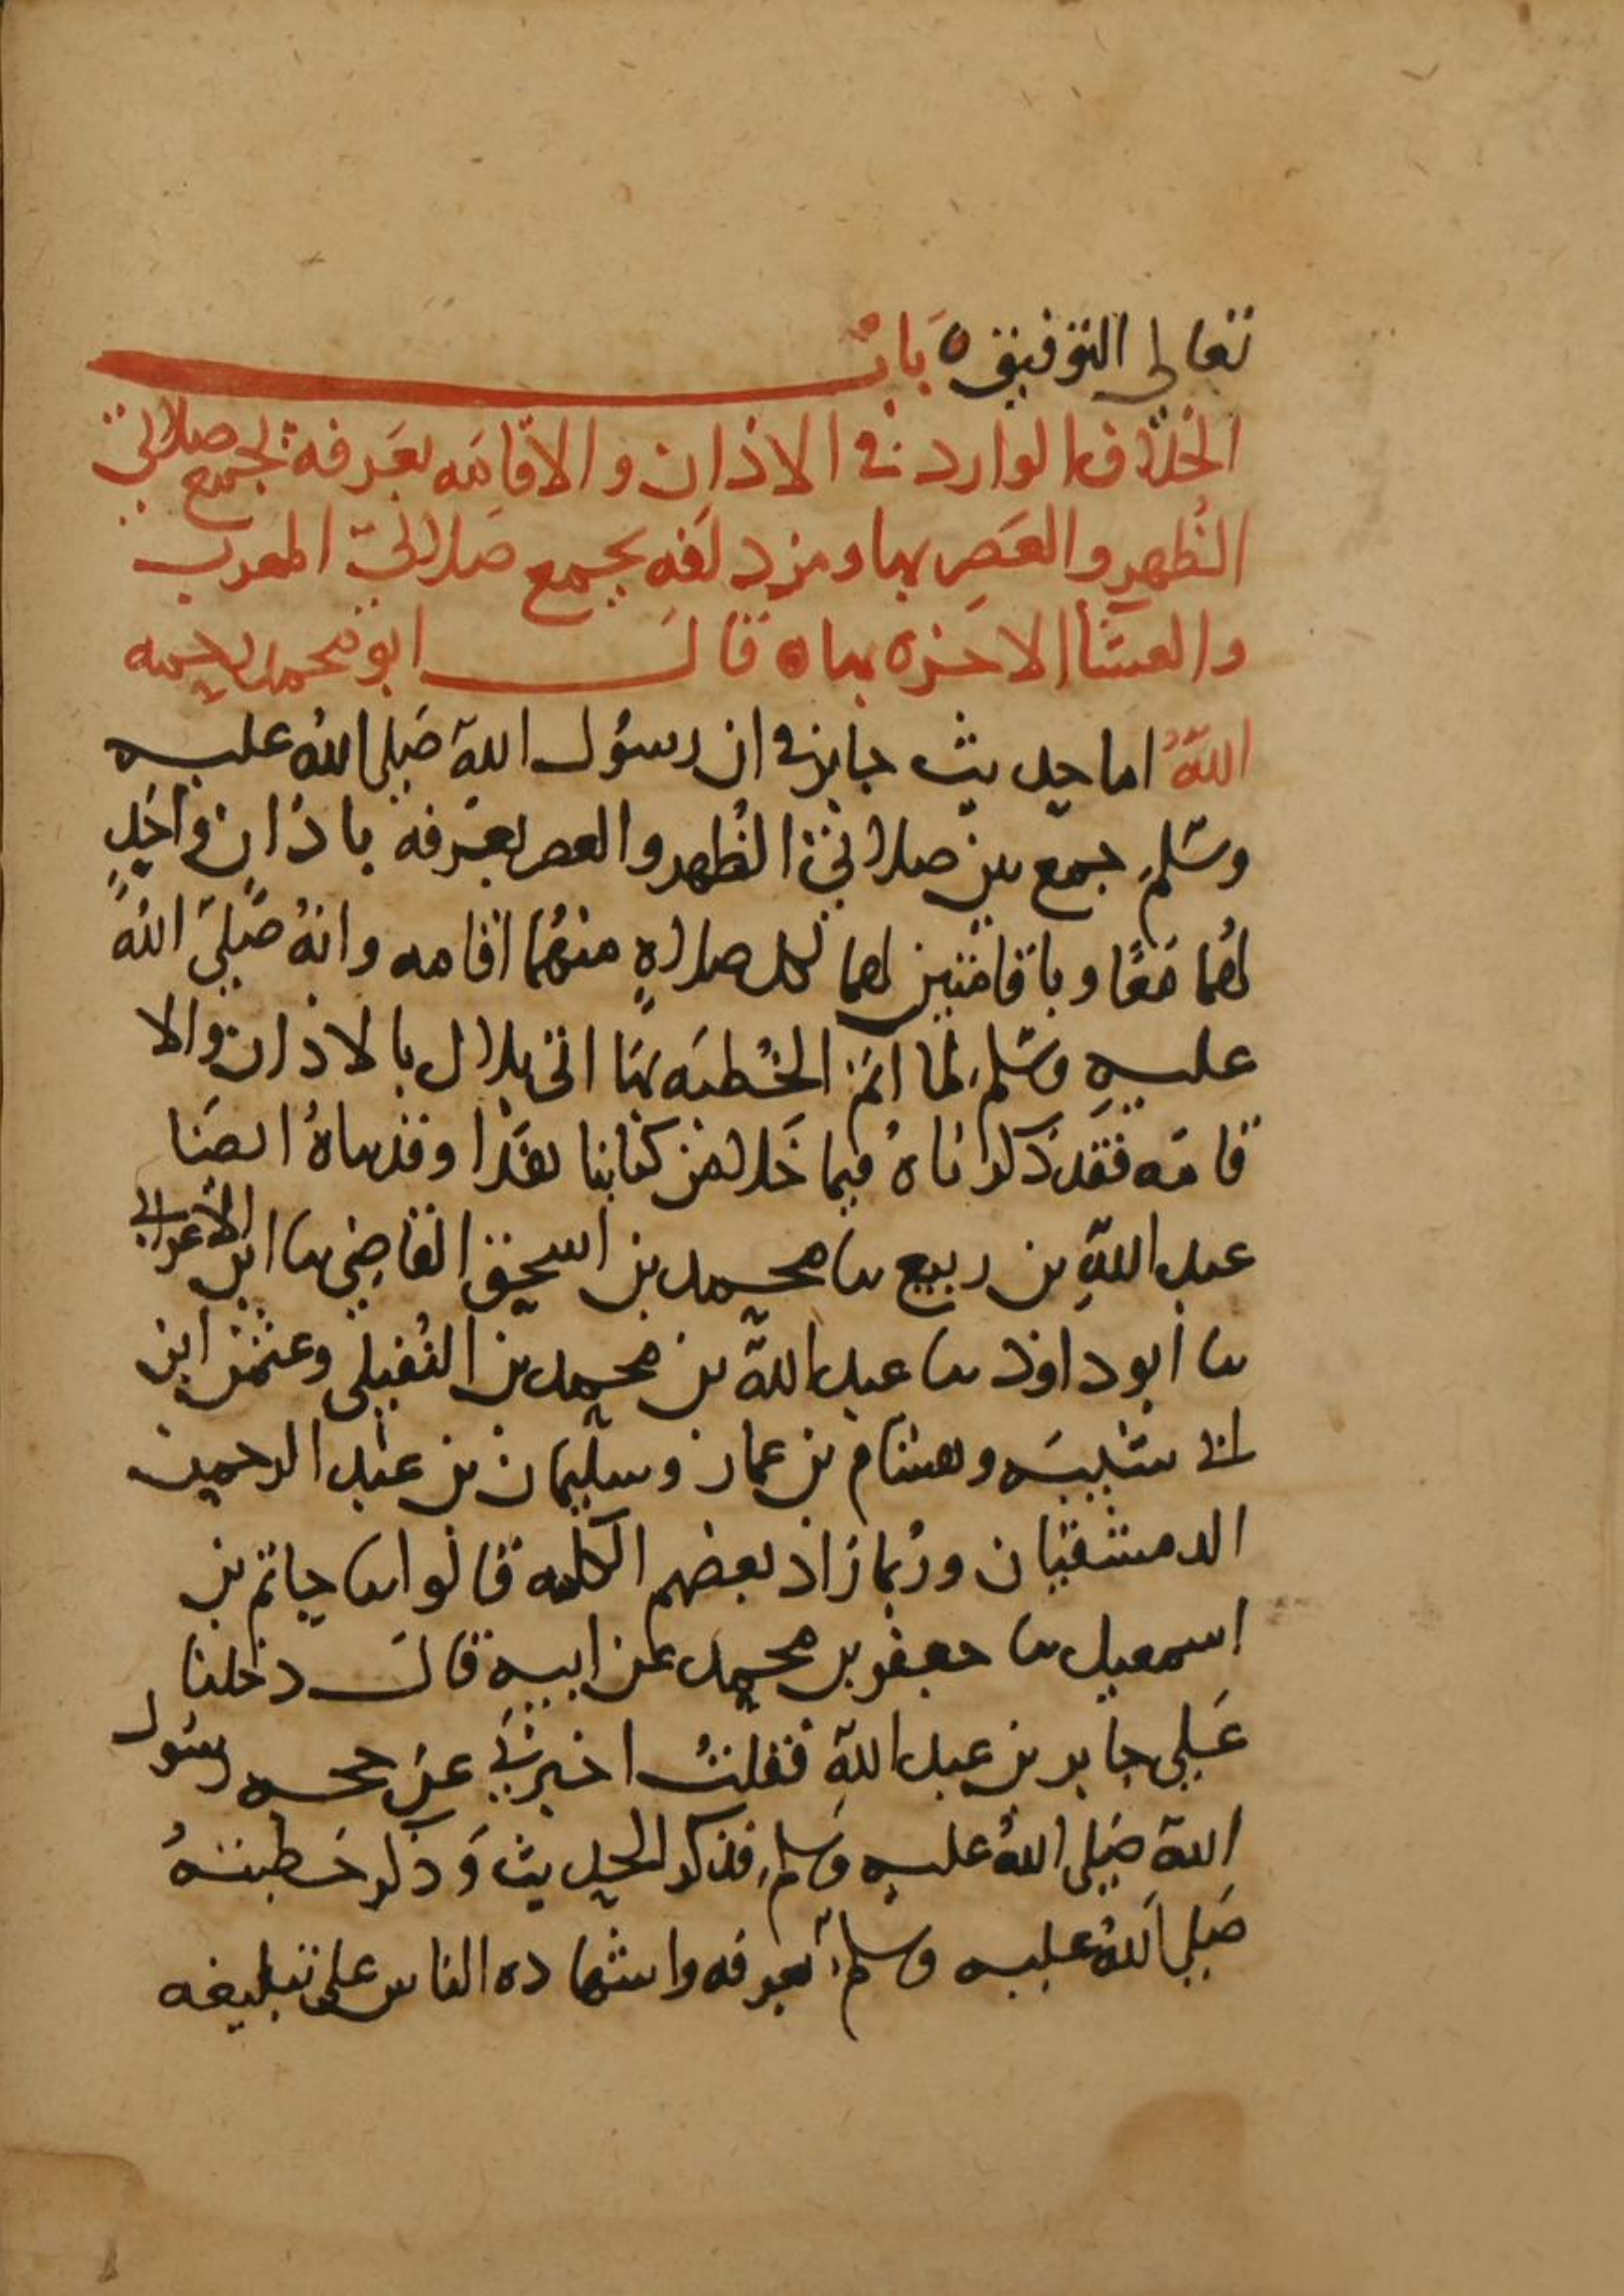 تعالى التوفيق ٥ باب
الخلاف الوارد في الاذان والاقامه بعرفة لجمع صلاتي
الظهر والعصر بها ومزدلفه بجمع صلاتي المغرب
والعشا الاخرة بها ٥ قال ابو محمد رحمه
الله اما حديث جابر في ان رسول الله صلى الله عليه
وسلم جمع بين صلاتي الظهر والعصر بعرفة باذان واحد
لهما معا وباقامتين لهما لكل صلاة منهما اقامه وانه صلى الله
عليه وسلم لما اتم الخطبه بها اتى بلال بالاذان والا
قامه فقد ذكرناه فيما خلا من كتابنا هذا وقد ساه ايضا
عبد الله بن ربيع سا محمد بن اسحق القاضي سا ابن الاعرابي
سا ابو داود سا عبد الله بن محمد بن النفيلي وعثمن ابن
ابي شيبه وهشام بن عمار وسليمان بن عبد الرحمن
الدمشقيان وربما زاد بعضهم الكلمه قالوا سا حاتم بن
اسمعيل سا جعفر بن محمد عن ابيه قال دخلنا
على جابر بن عبد الله فقلت اخبرني عن حجه رسول
الله صلى الله عليه وسلم فذكر الحديث وذكر خطبته
صلى الله عليه وسلم بعرفه واشهاده الناس على تبليغه